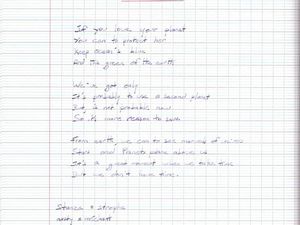 If you love your planet
You can to protect her
Keep Ocean's blue
And the green of the earth
We've got only
It's probably to use a second planet
But is not probable now
So it's more reason to
From earth, we can to see
Stars and Planets above us
It's a great moment when we take time
But we don't have time.
Stanza & strophe